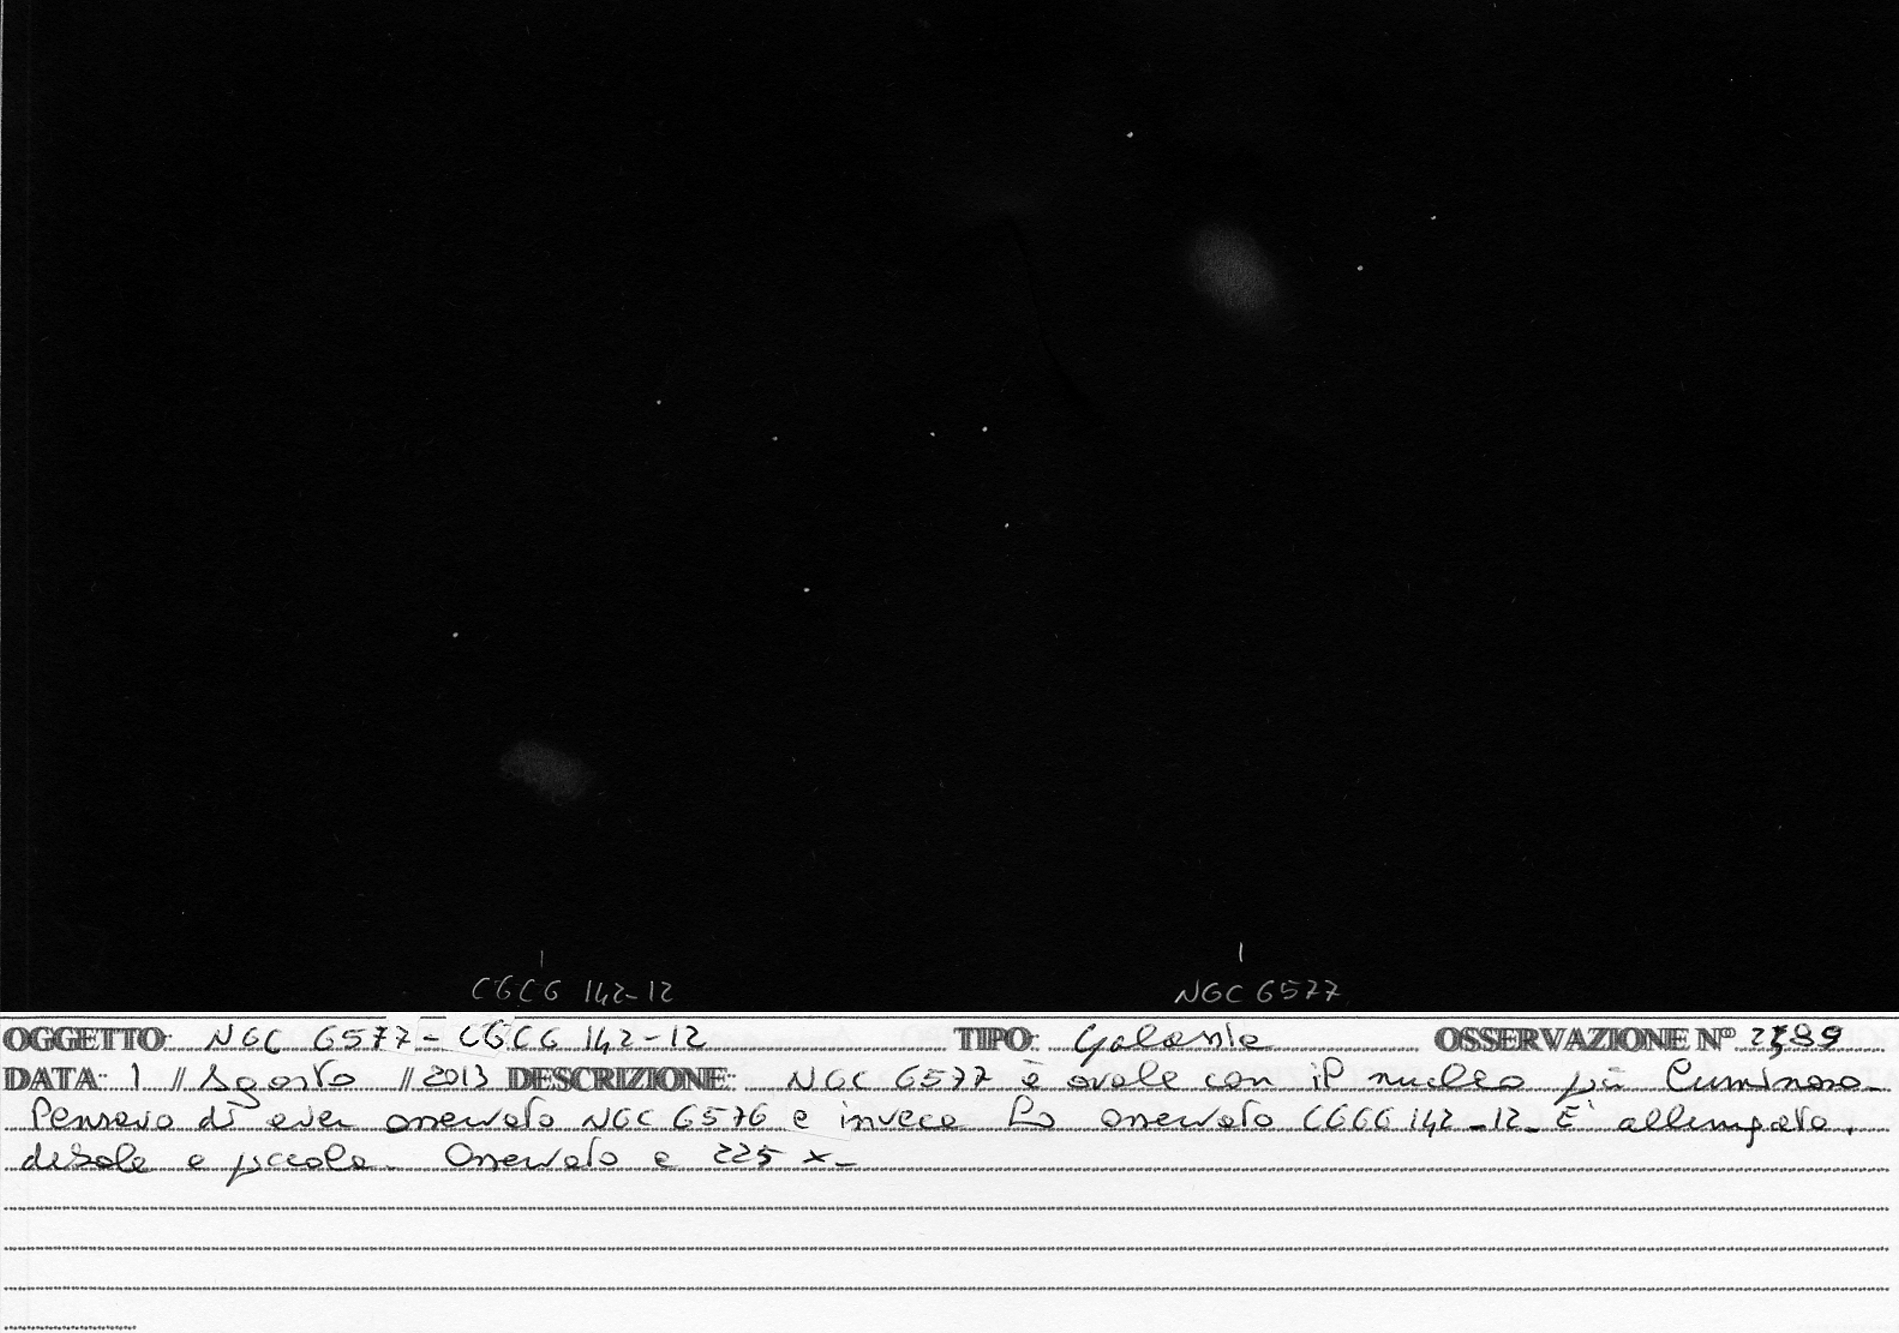 CGCG 142-12 NGC 6577
OGGETTO: NGC 6577 - CGCG 142-12 TIPO: Galassie OSSERVAZIONE N°
DATA: 1 // Agosto // 2013 DESCRIZIONE: NGC 6577 è ovale con il nucleo più luminoso.
Pensavo di aver osservato NGC 6576 e invece ho osservato CGCG 142-12. E' allungata,
debole e piccola. Osservato a 225 x.